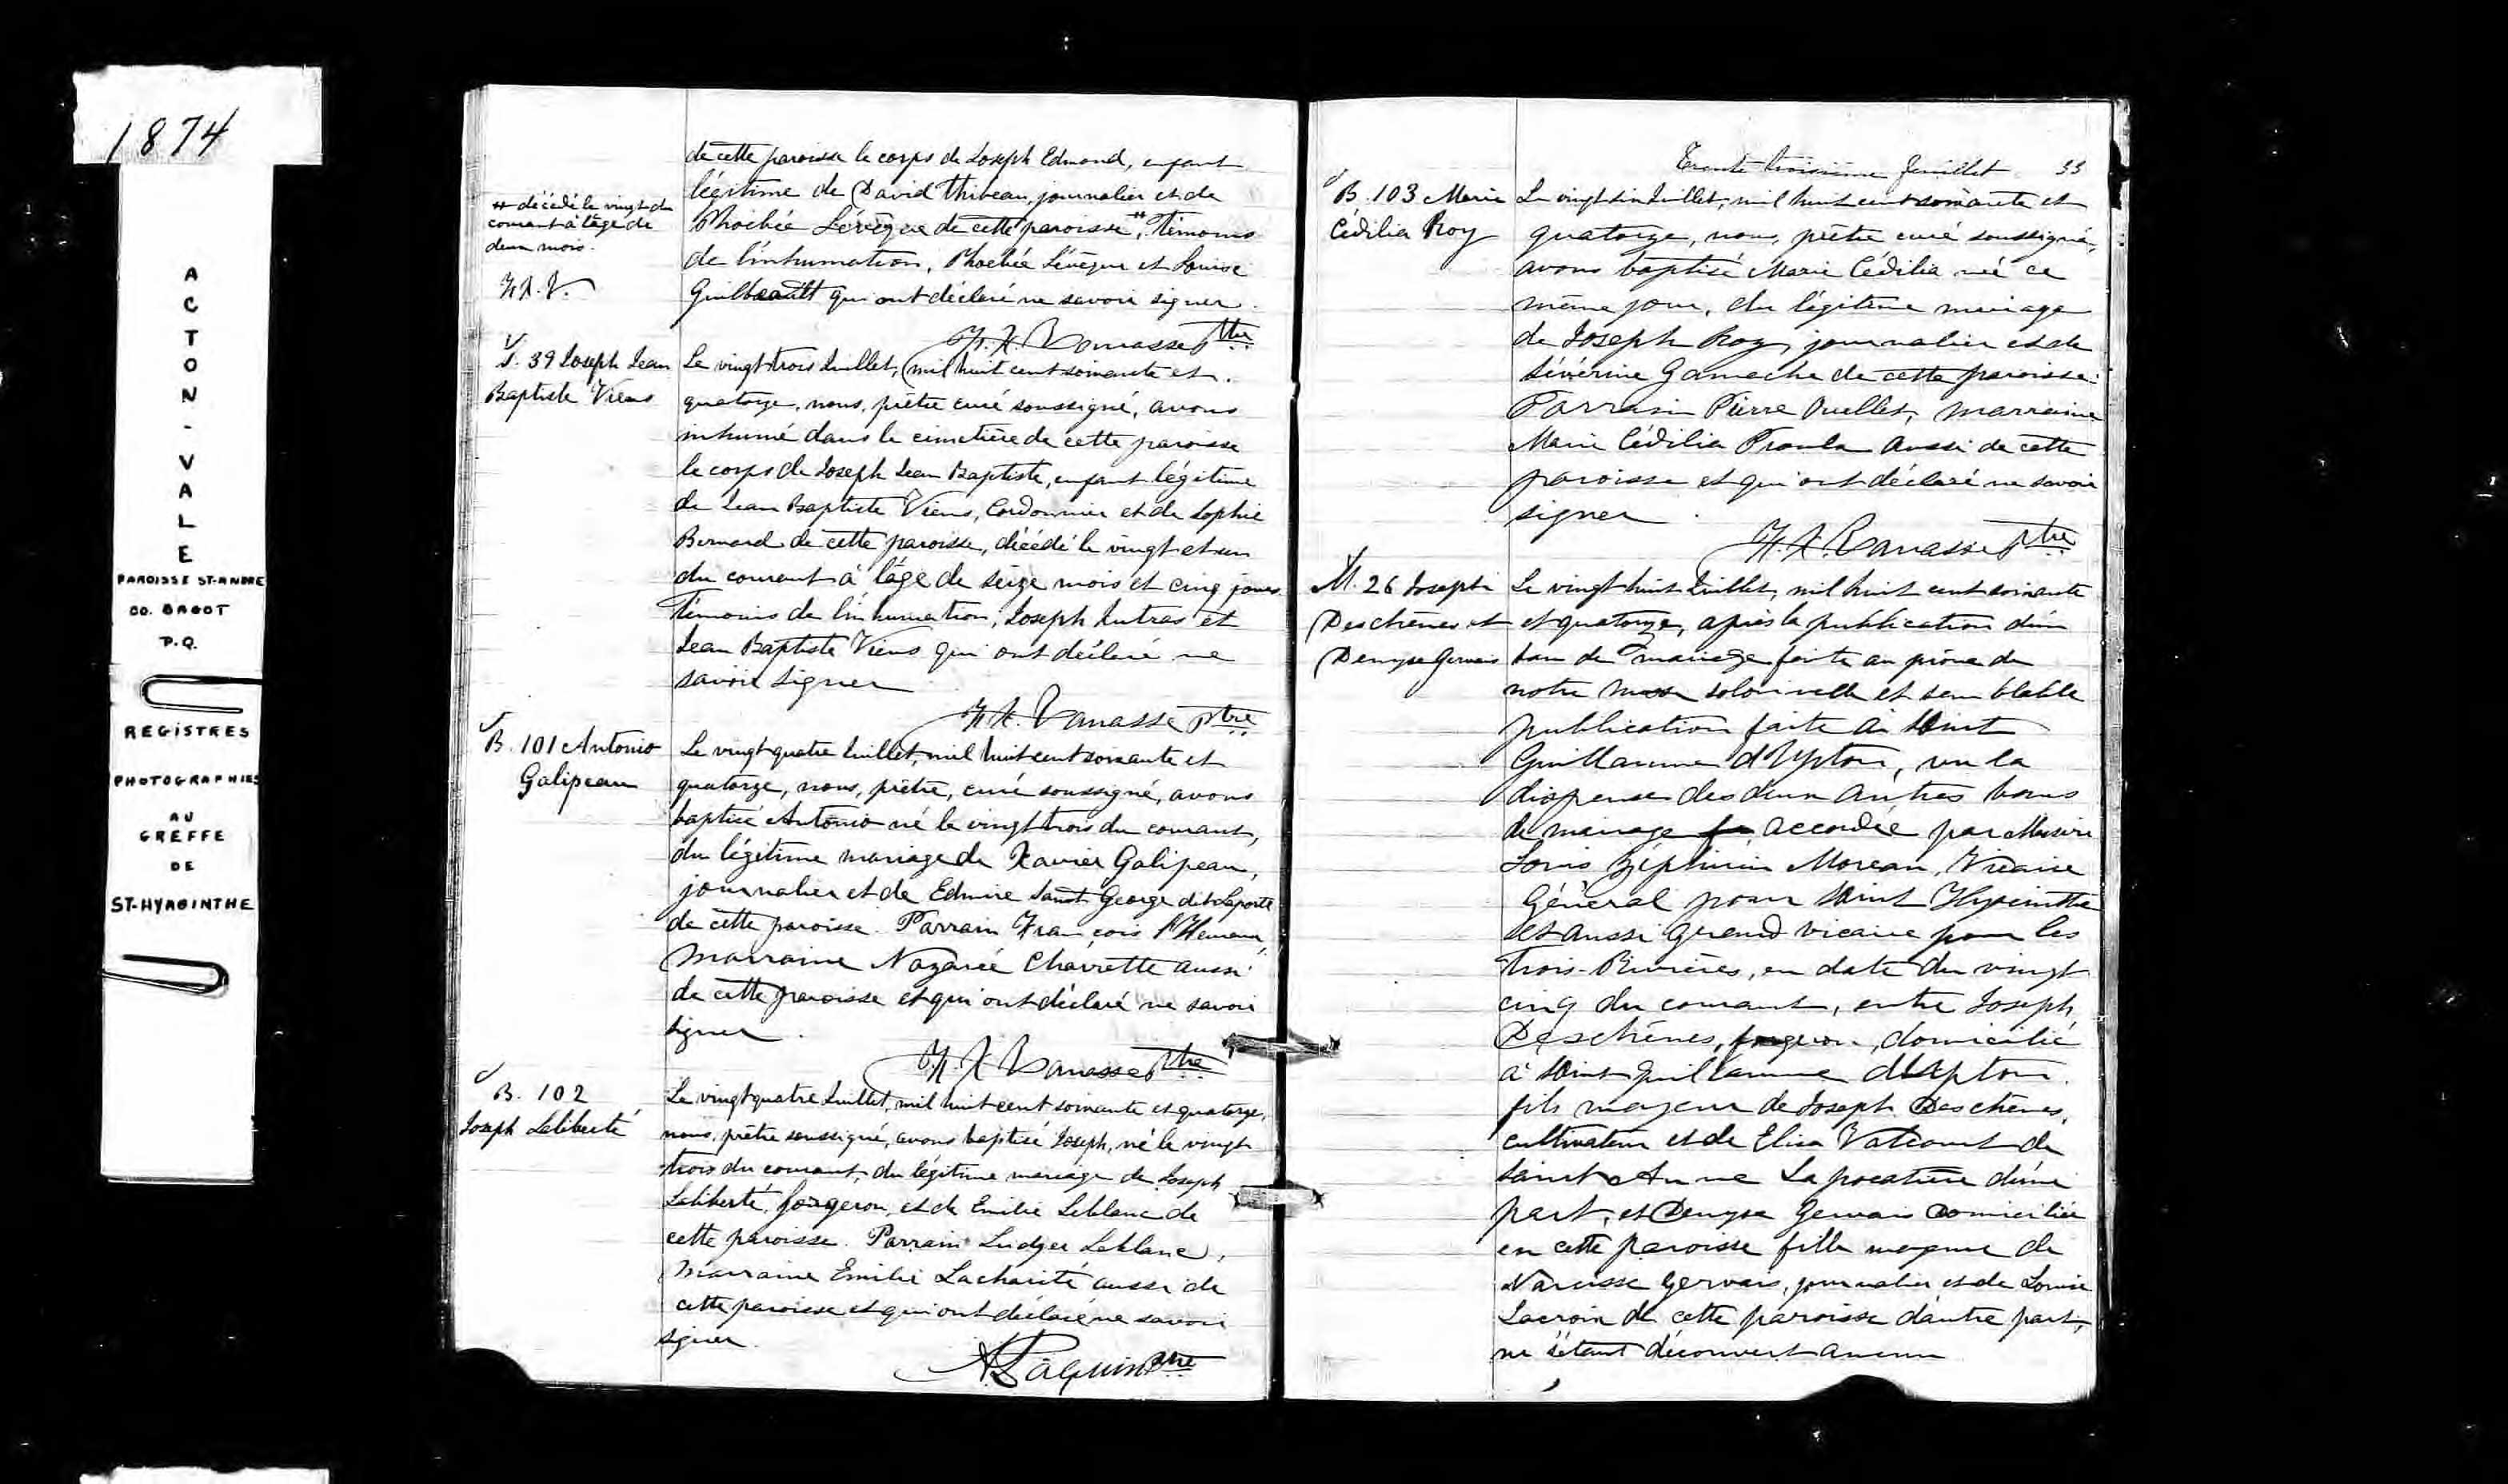 1874
ACTON-VALE
PAROISSE ST-ANDRE
CO. BAGOT
P.Q.
REGISTRES
PHOTOGRAPHIES
AU
GREFFE
DE
ST-HYACINTHE
de cette paroisse le corps de Joseph Edmond, enfant
légitime de David Thibeau, journalier et de
# décédé le vingt du
courant à l'âge de
deux mois.
Phoebée Lévêque de cette paroisse #, Témoins
de l'inhumation, Phoebée Lévèque et Louise
F.X.V.
Guilbeault qui ont déclaré ne savoir signer.
F.X. Vanasse Ptre
S. 39 Joseph Jean
Baptiste Viens
Le vingt trois Juillet, mil huit cent soixante et
quatorze, nous, prêtre curé soussigné, avons
inhumé dans le cimetière de cette paroisse
le corps de Joseph Jean Baptiste, enfant légitime
de Jean Baptiste Viens, Cordonnier et de Sophie
Bernard de cette paroisse, décédé le vingt et un
du courant à l'âge de seize mois et cinq jours
Témoins de l'inhumation, Joseph Lutras et
Jean Baptiste Viens qui ont déclaré ne
savoir signer
F.X. Vanasse Ptre
B. 101 Antonio
Galipeau
Le vingt quatre Juillet, mil huit cent soixante et
quatorze, nous, prêtre, curé soussigné, avons
baptisé Antonio né le vingt trois du courant,
du légitime mariage de Xavier Galipeau,
journalier et de Edmire Saint George dit Laporte
de cette paroisse. Parrain François
Marraine Nazarée Chavrette aussi
de cette paroisse et qui ont déclaré ne savoir
signer.
F.X Vanasse Ptre
B. 102
Joseph Laliberté
Le vingt quatre Juillet, mil huit cent soixante et quatorze,
nous, prêtre soussigné, avons baptisé Joseph, né le vingt
trois du courant, du légitime mariage de Joseph
Laliberté, forgeron, et de Emilie Leblanc de
cette paroisse. Parrain Ludger Leblanc,
Marraine Emilie Lacharité aussi de
cette paroisse et qui ont déclaré ne savoir
signer.
Paquin Ptre
Trente troisième feuillet 33
B. 103 Marie
Cédilia Roy
Le vingt six Juillet, mil huit cent soixante et
quatorze, nous, prêtre curé soussigné,
avons baptisé Marie Cédilia née ce
même jour, du légitime mariage
de Joseph Roy, journalier et de
Sévérine Gamache de cette paroisse.
Parrain Pierre Ouellet, marraine
Marie Cédilia Proulx aussi de cette
paroisse et qui ont déclaré ne savoir
signer.
F.X. Vanasse Ptre
M. 26 Joseph
Deschènes et
Denyse Gervais
Le vingt huit Juillet, mil huit cent soixante
et quatorze, après la publication d'un
ban de mariage faite au prône de
notre messe solennelle et semblable
publication faite à Saint
Guillaume d'Upton, vu la
dispense des deux autres bans
de mariage accordée par Messire
Louis Zéphirin Moreau, Vicaire
Général pour Saint Hyacinthe
et aussi grand vicaire pour les
Trois-Rivières, en date du vingt
cinq du courant, entre Joseph
Deschènes, forgeron, domicilié
à Saint Guillaume d'Upton.
fils majeur de Joseph Deschènes,
cultivateur et de Elisa Valcourt de
Saint Anne Lapocatière d'une
part, et Denyse Gervais domiciliée
en cette paroisse fille mageure de
Narcisse Gervais, journalier et de Louise
Lacroix de cette paroisse d'autre part,
ne s'étant découvert aucun